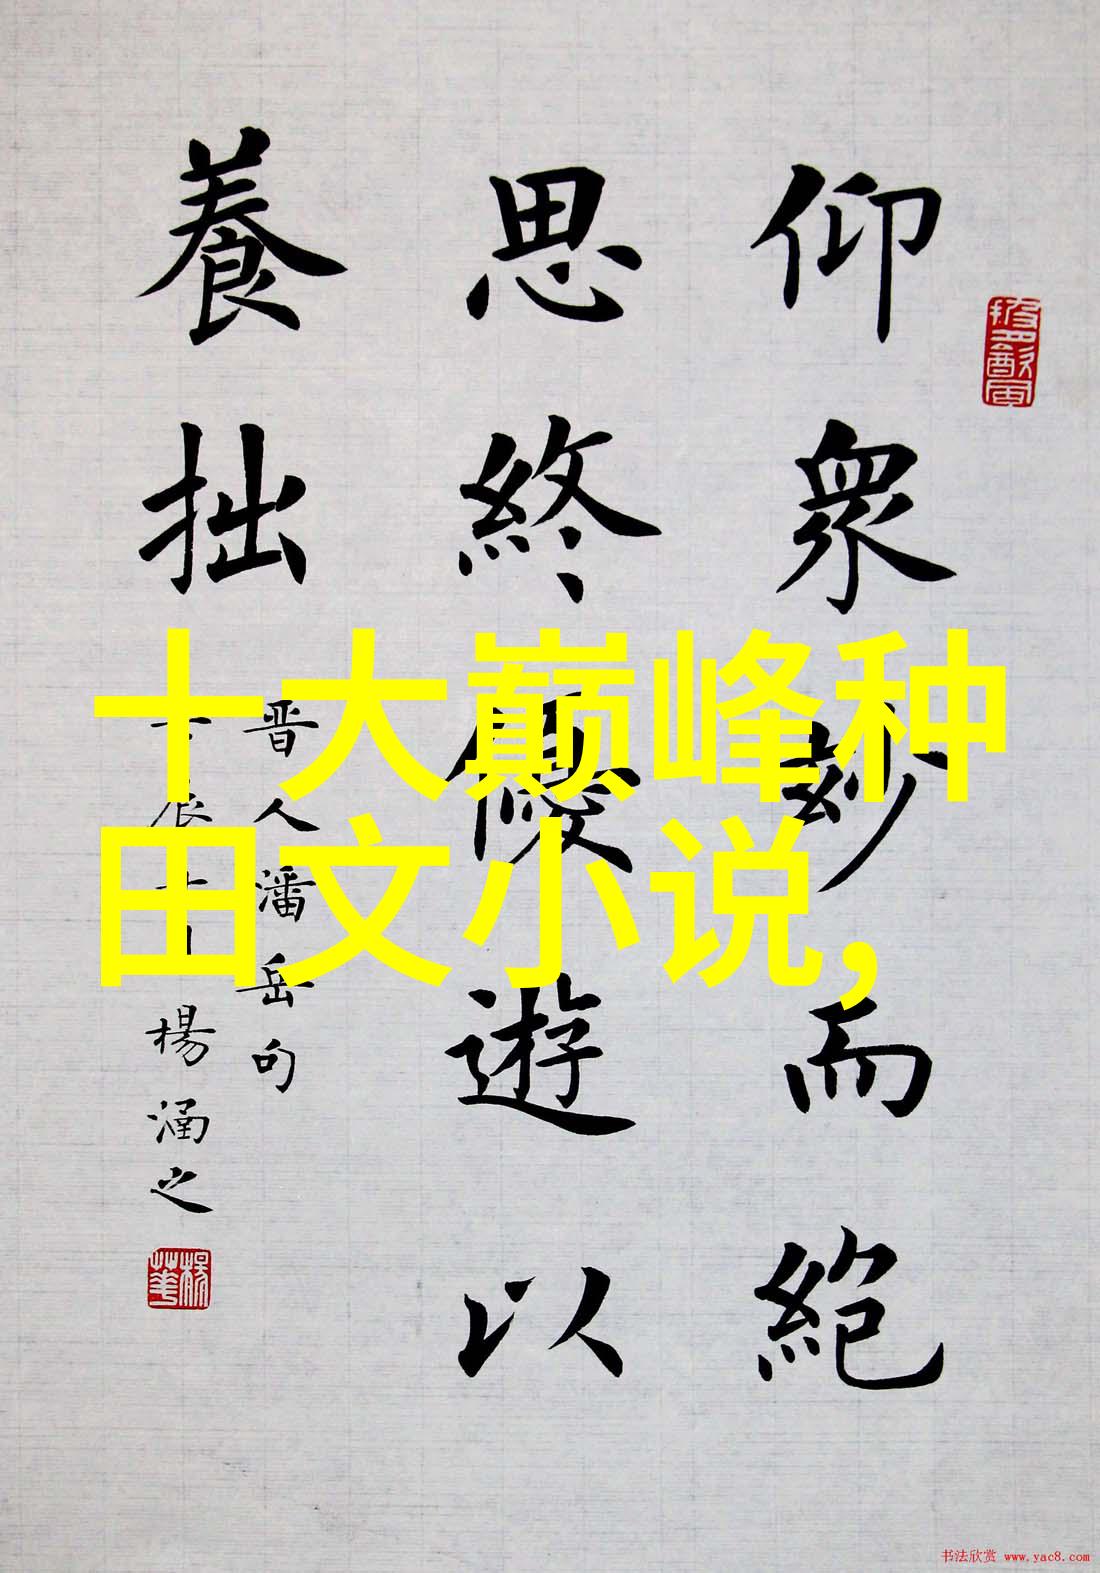 仰眾妙而絶
思終優遊以
養拙
晋人潘岳句
楊涵之
十大巅峰种
田文小说，
书法欣赏 www.yac8.com